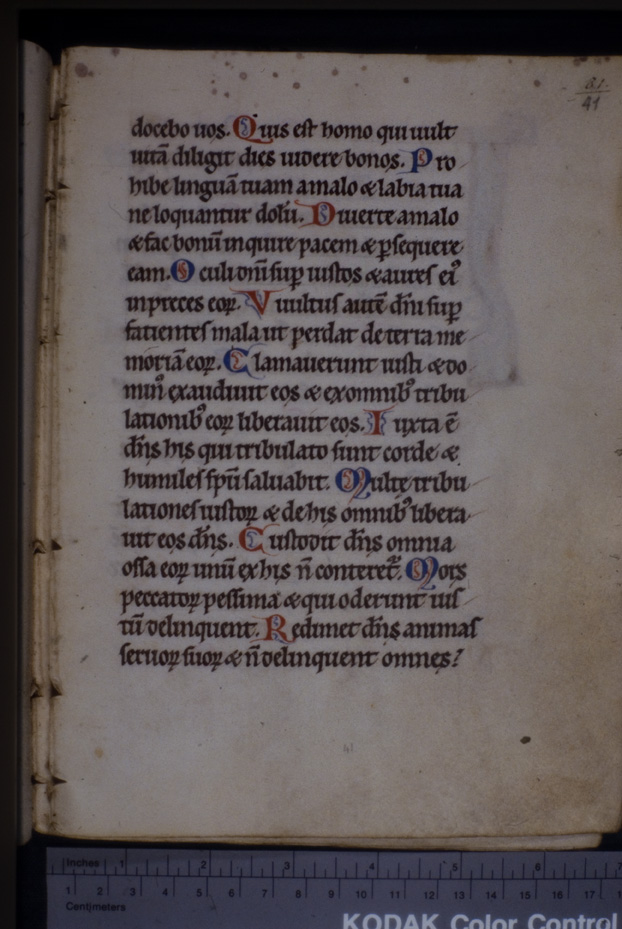 81.
41
docebo uos. Quis est homo qui uult
uitā diligit dies uidere bonos. Pro
hibe linguā tuam a malo & labia tua
ne loquantur dolū. Diuerte a malo
& fac bonū inquire pacem & ꝑsequere
eam. Oculi dn̄i suꝑ iustos & aures ei᾽
in preces eoꝝ. Vuultus autē dn̄i suꝑ
facientes mala ut perdat de terra me
moriā eoꝝ. Clamauerunt iusti & do
min᾽ exaudiuit eos & ex omnib᾽ tribu
lationib᾽ eoꝝ liberauit eos. Iuxta ē
dn̄s his qui tribulato sunt corde &
humiles sp̄u saluabit. Multę tribu
lationes iustoꝝ & de his omnib᾽ libera
uit eos dn̄s. Custodit dn̄s omnia
ossa eoꝝ unū ex his n̄ conteret᾽. Mors
peccatoꝝ pessima & qui oderunt ius
tū delinquent. Redimet dn̄s animas
seruoꝝ suoꝝ & n̄ delinquent omnes?
41
Inches 1 2 3 4 5 6 7
1 2 3 4 5 6 7 8 9 10 11 12 13 14 15 16 17
Centimeters
KODAK Color Control